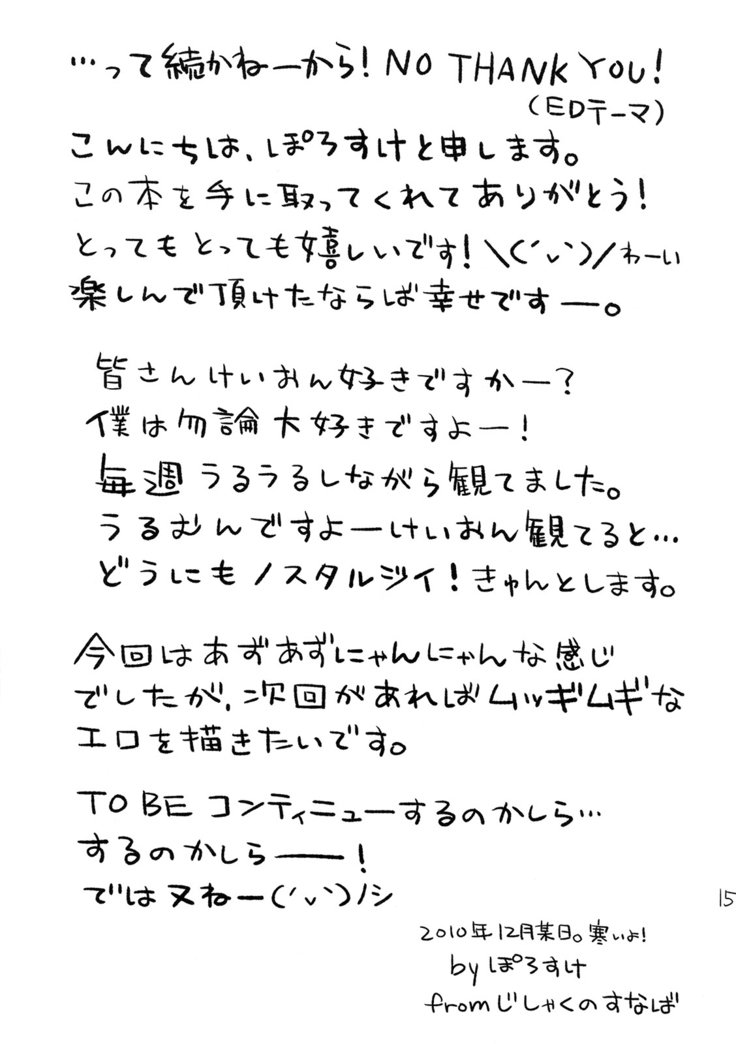 …って続かねーから！NO THANK YOU！
（EDテーマ）
こんにちは、ぽろすけと申します。
この本を手に取ってくれてありがとう！
とってもとっても嬉しいです！＼(´ヽ`)／わーい
楽しんで頂けたならば幸せですー。
皆さんけいおん好きですかー？
僕は勿論大好きですよー！
毎週うるうるしながら観てました。
うるむんですよーけいおん観てると…
どうにもノスタルジイ！きゅんとします。
今回はあずあずにゃんにゃんな感じ
でしたが、次回があればムッギムギな
エロを描きたいです。
TO BE コンティニューするのかしら…
するのかしら――！
では又ねー(´ヽ`)ノシ
15
2010年12月某日。寒いよ！
by ぽろすけ
fromじしゃくのすなば